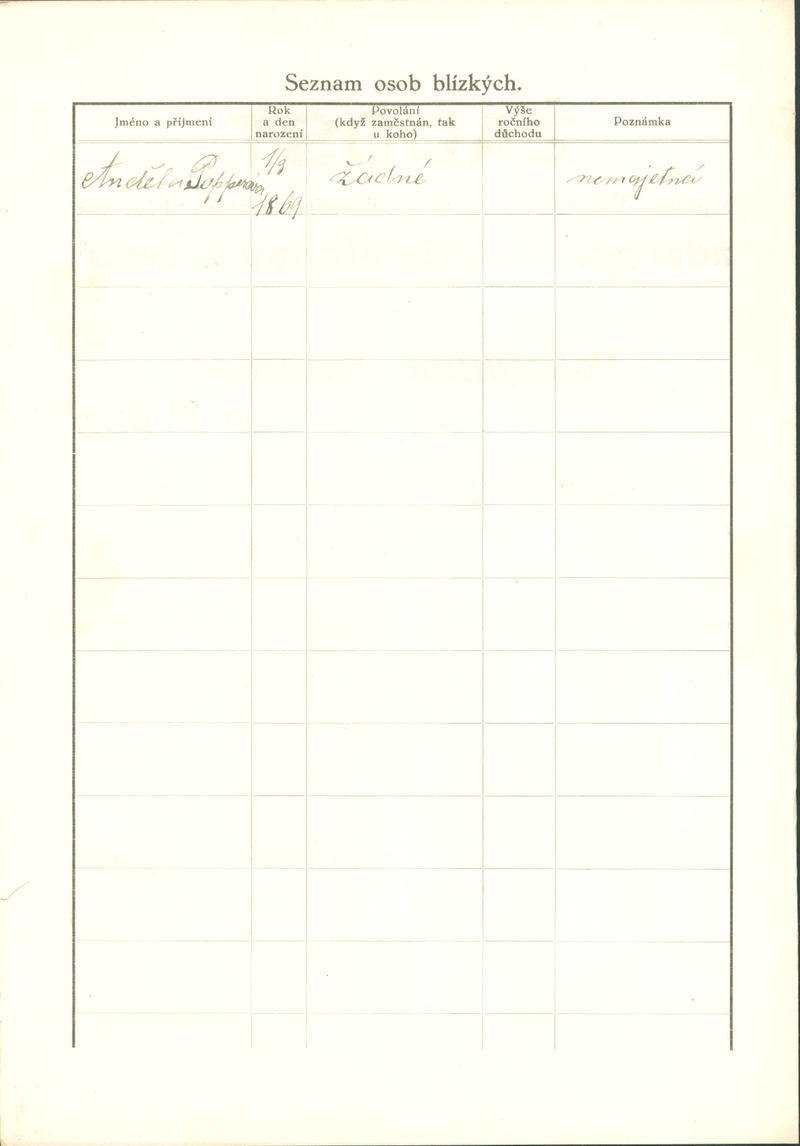 Seznam osob blízkých.
Jméno a příjmení
Rok
a den
narození
Povolání
(když zaměstnán, tak
u koho)
Výše
ročního
důchodu
Poznámka
Anděla Popperová
1/3
1869
žádné
nemajetná